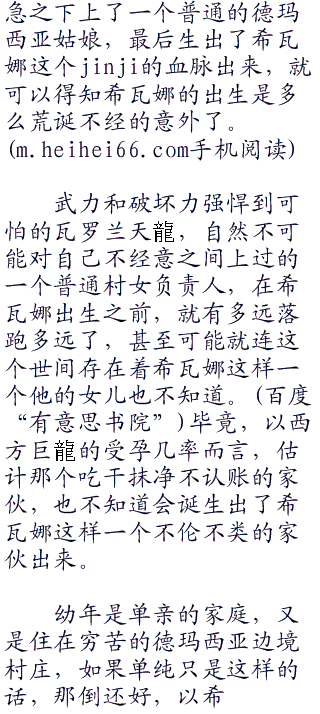 急之下上了一个普通的德玛
西亚姑娘，最后生出了希瓦
娜这个jinji的血脉出来，就
可以得知希瓦娜的出生是多
么荒诞不经的意外了。
(m.heihei66.com手机阅读)
武力和破坏力强悍到可
怕的瓦罗兰天龍，自然不可
能对自己不经意之间上过的
一个普通村女负责人，在希
瓦娜出生之前，就有多远落
跑多远了，甚至可能就连这
个世间存在着希瓦娜这样一
个他的女儿也不知道。(百度
“有意思书院”)毕竟，以西
方巨龍的受孕几率而言，估
计那个吃干抹净不认账的家
伙，也不知道会诞生出了希
瓦娜这样一个不伦不类的家
伙出来。
幼年是单亲的家庭，又
是住在穷苦的德玛西亚边境
村庄，如果单纯只是这样的
话，那倒还好，以希